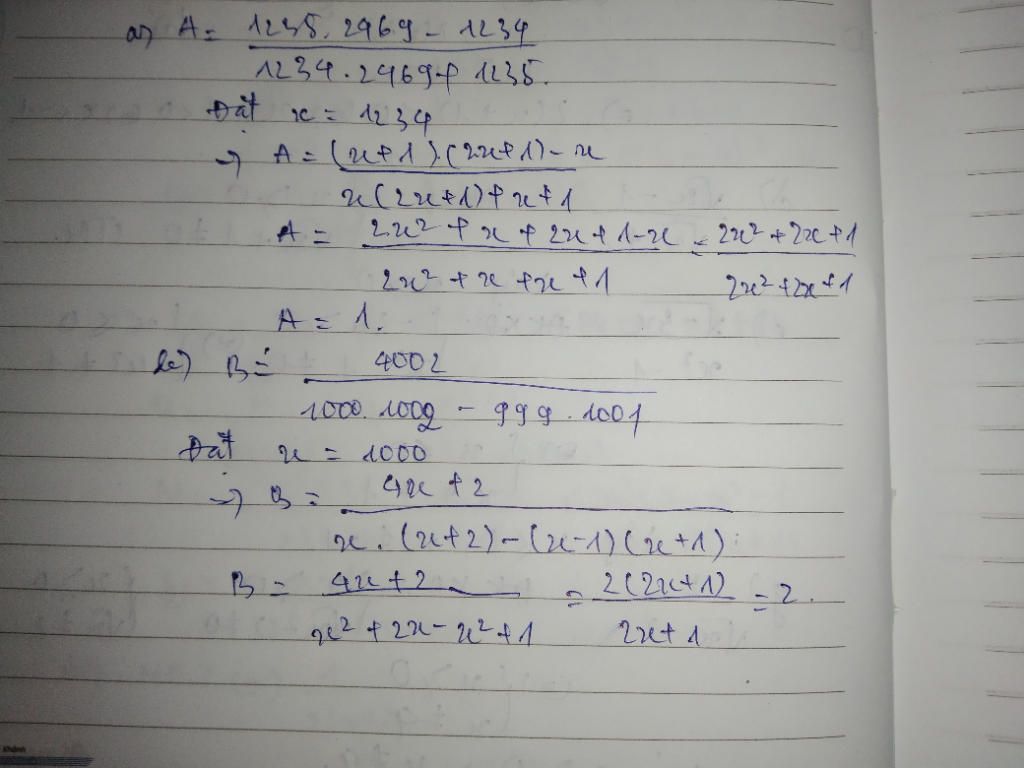 a) A = 1235.2469 - 1234
1234.2469 + 1235.
Đặt x = 1234
→ A = (x+1).(2x+1) - x
x(2x+1) + x+1
A = 2x² + x + 2x + 1 - x = 2x² + 2x + 1
2x² + x + x + 1 2x² + 2x + 1
A = 1.
b) B = 4002
1000.1002 - 999.1001
Đặt x = 1000
→ B = 4x + 2
x.(x+2) - (x-1)(x+1)
B = 4x + 2 = 2(2x+1) = 2.
x² + 2x - x² + 1 2x + 1
Khánh